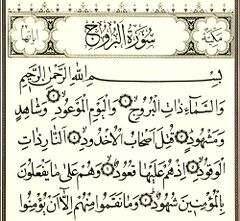 مكية
سُورَةُ البُرُوجِ
بِسْمِ اللَّهِ الرَّحْمَٰنِ الرَّحِيمِ
وَالسَّمَاءِ ذَاتِ الْبُرُوجِ وَالْيَوْمِ الْمَوْعُودِ وَشَاهِدٍ
وَمَشْهُودٍ قُتِلَ أَصْحَابُ الْأُخْدُودِ النَّارِ ذَاتِ
الْوَقُودِ إِذْ هُمْ عَلَيْهَا قُعُودٌ وَهُمْ عَلَىٰ مَا يَفْعَلُونَ
بِالْمُؤْمِنِينَ شُهُودٌ وَمَا نَقَمُوا مِنْهُمْ إِلَّا أَنْ يُؤْمِنُوا